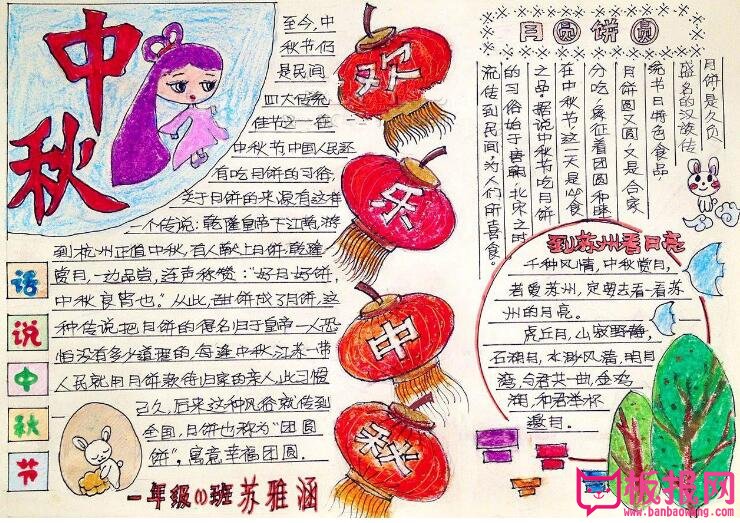 中秋
至今,中
秋节仍
是民间
四大传统
佳节之一在
中秋节中国人民还
有吃月饼的习俗,
关于月饼的来源有这样
一个传说:乾隆皇帝下江南,游
到杭州正值中秋,有人献上月饼,乾隆
赏月,一边品尝,连声称赞:"好月好饼,
中秋良宵也。"从此,甜饼成了月饼,这
种传说把月饼的得名归于皇帝一人恐
怕没有多少道理的,每逢中秋,江苏一带
人民就用月饼款待归家的亲人,此习惯
已久,后来这种风俗就传到
全国,月饼也称为"团圆
饼",寓意幸福团圆.
话说中秋节
一年级(1)班 苏雅涵
欢乐中秋
月圆饼圆
月饼是久负
盛名的汉族传
统节日特色食品,
月饼圆又圆,又是合家
分吃,象征着团圆和睦
在中秋节这一天是必食
之品.据说中秋节吃月饼
的习俗始于唐朝.北宋之时
流传到民间,为人们所喜食。
到苏州看月亮
千种风情,中秋赏月,
若爱苏州,定要去看一看苏
州的月亮。
虎丘月,山寂野静,
石湖月,水澍风清,明月
湾,与君共一曲,金鸡
湖,和君举杯
邀月.
板报网
www.banbaowang.com